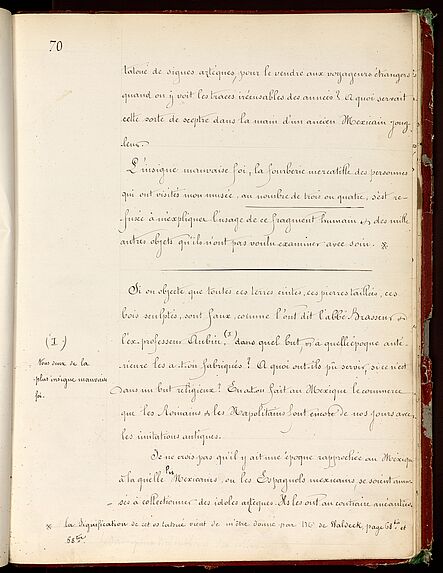 70
tatoué de signes aztèques, pour le vendre aux voyageurs étrangers
quand on y voit les traces irrécusables des années? A quoi servait
cette sorte de sceptre dans la main d'un ancien Mexicain jong-
leur
L'insigne mauvaise foi, la fourberie mercatille des personnes
qui ont visités mon musée, au nombre de trois ou quatre, s'est re-
fusée à m'expliquer l'usage de ce fragment humain & des mille
autres objets qu'ils n'ont pas voulu examiner avec soin. ※
Si on objecte que toutes ces terres cuites, ces pierres taillées, ces
bois sculptés, sont faux, comme l'ont dit l'abbé Brasseur, ou
l'ex. professeur Aubin, (I) dans quel but, or a quelle époque anté-
rieure les a-t-on fabriqués? A quoi ont-ils pu servir, si ce n'est
dans un but religieux? En a-t-on fait au Mexique le commerce
que les Romains & les Napolitains font encore de nos jours avec
les imitations antiques.
(I.)
Tous deux de la
plus insigne mauvaise
foi.
Je ne crois pas qu'il y ait une époque rapprochée au Mexique
à la quelle les Mexicains, ou les Espagnols mexicains se soient amu-
sés à collectionner des idoles aztèques. Ils les ont au contraire anéanties,
※ La signification de cet os tatoué vient de m'être donné par Mr de Waldeck, page 68 bis et
68 ter.